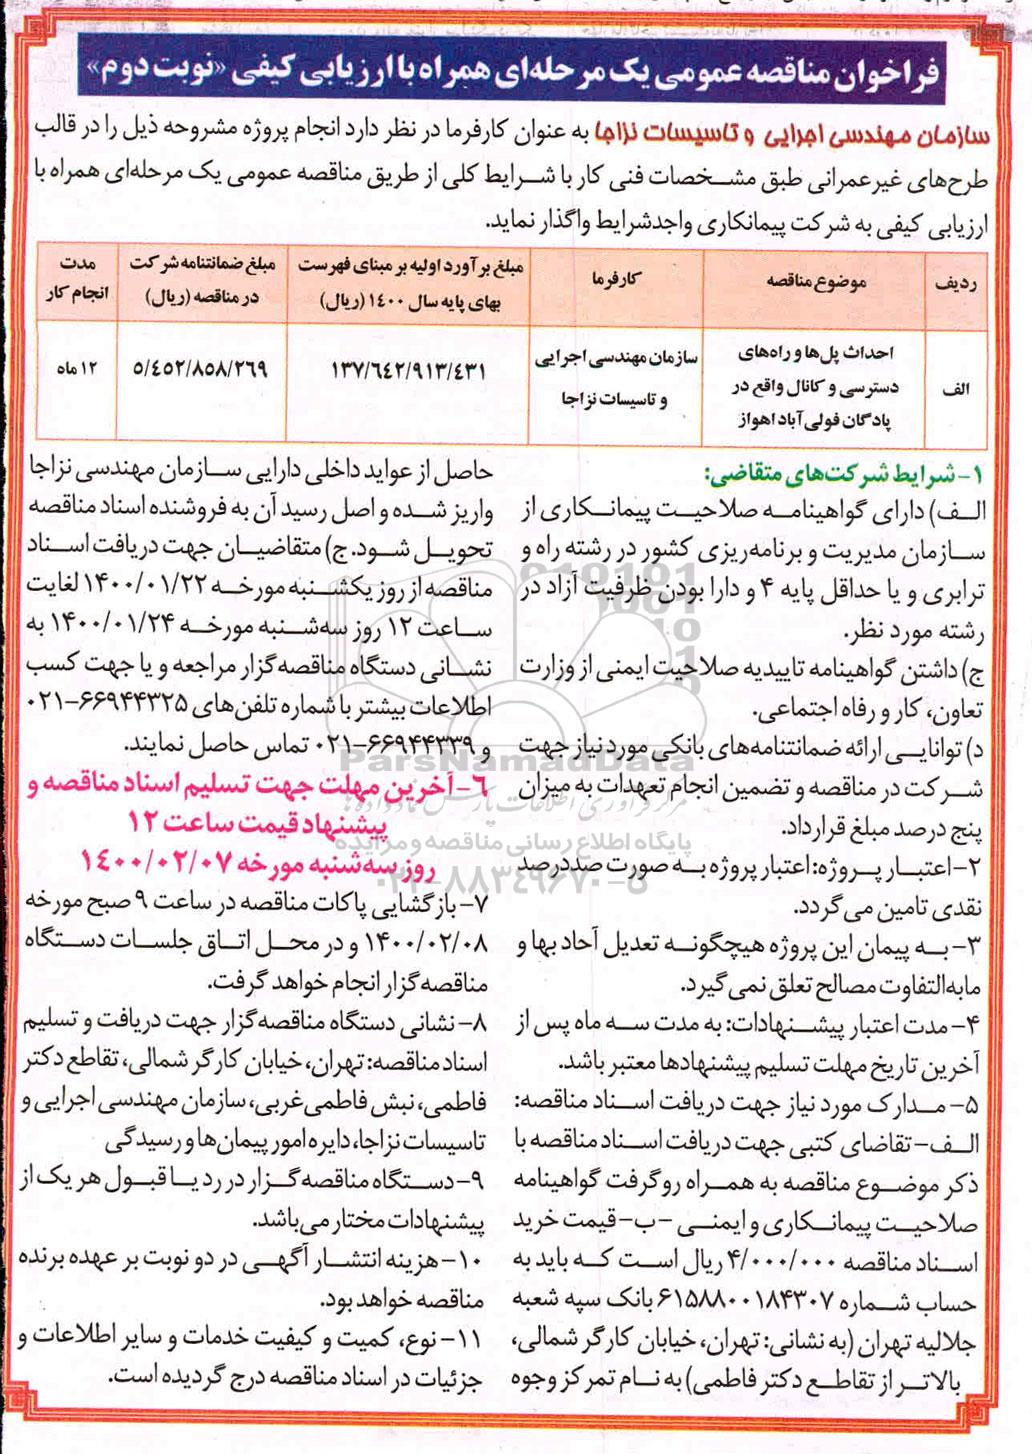 فراخوان مناقصه عمومی یک مرحله‌ای همراه با ارزیابی کیفی «نوبت دوم»
سازمان مهندسی اجرایی و تاسیسات نزاجا به عنوان کارفرما در نظر دارد انجام پروژه مشروحه ذیل را در قالب
طرح‌های غیرعمرانی طبق مشخصات فنی کار با شرایط کلی از طریق مناقصه عمومی یک مرحله‌ای همراه با
ارزیابی کیفی به شرکت پیمانکاری واجد شرایط واگذار نماید.
ردیف
موضوع مناقصه
کارفرما
مبلغ برآورد اولیه بر مبنای فهرست
بهای پایه سال ۱۴۰۰ (ریال)
مبلغ ضمانتنامه شرکت
در مناقصه (ریال)
مدت
انجام کار
الف
احداث پل‌ها و راه‌های
دسترسی و کانال واقع در
پادگان فولی آباد اهواز
سازمان مهندسی اجرایی
و تاسیسات نزاجا
۱۳۷/۶۴۲/۹۱۳/۴۳۱
۵/۴۵۲/۸۵۸/۲۶۹
۱۲ ماه
۱- شرایط شرکت‌های متقاضی:
الف) دارای گواهینامه صلاحیت پیمانکاری از
سازمان مدیریت و برنامه‌ریزی کشور در رشته راه و
ترابری و یا حداقل پایه ۴ و دارا بودن ظرفیت آزاد در
رشته مورد نظر.
ج) داشتن گواهینامه تاییدیه صلاحیت ایمنی از وزارت
تعاون، کار و رفاه اجتماعی.
د) توانایی ارائه ضمانتنامه‌های بانکی مورد نیاز جهت
شرکت در مناقصه و تضمین انجام تعهدات به میزان
پنج درصد مبلغ قرارداد.
۲- اعتبار پروژه: اعتبار پروژه به صورت صددرصد
نقدی تامین می‌گردد.
۳- به پیمان این پروژه هیچگونه تعدیل آحاد بها و
مابه‌التفاوت مصالح تعلق نمی‌گیرد.
۴- مدت اعتبار پیشنهادات: به مدت سه ماه پس از
آخرین تاریخ مهلت تسلیم پیشنهادها معتبر باشد.
۵- مدارک مورد نیاز جهت دریافت اسناد مناقصه:
الف- تقاضای کتبی جهت دریافت اسناد مناقصه با
ذکر موضوع مناقصه به همراه روگرفت گواهینامه
صلاحیت پیمانکاری و ایمنی -ب- قیمت خرید
اسناد مناقصه ۴/۰۰۰/۰۰۰ ریال است که باید به
حساب شماره ۶۱۵۸۸۰۰۱۸۴۳۰۷ بانک سپه شعبه
جلالیه تهران (به نشانی: تهران، خیابان کارگر شمالی،
بالاتر از تقاطع دکتر فاطمی) به نام تمرکز وجوه
حاصل از عواید داخلی دارایی سازمان مهندسی نزاجا
واریز شده و اصل رسید آن به فروشنده اسناد مناقصه
تحویل شود. ج) متقاضیان جهت دریافت اسناد
مناقصه از روز یکشنبه مورخه ۱۴۰۰/۰۱/۲۲ لغایت
ساعت ۱۲ روز سه‌شنبه مورخه ۱۴۰۰/۰۱/۲۴ به
نشانی دستگاه مناقصه‌گزار مراجعه و یا جهت کسب
اطلاعات بیشتر با شماره تلفن‌های ۶۶۹۴۴۳۲۵-۰۲۱
و ۶۶۹۴۴۳۳۹-۰۲۱ تماس حاصل نمایند.
۶- آخرین مهلت جهت تسلیم اسناد مناقصه و
پیشنهاد قیمت ساعت ۱۲
روز سه‌شنبه مورخه ۱۴۰۰/۰۲/۰۷
۷- بازگشایی پاکات مناقصه در ساعت ۹ صبح مورخه
۱۴۰۰/۰۲/۰۸ و در محل اتاق جلسات دستگاه
مناقصه‌گزار انجام خواهد گرفت.
۸- نشانی دستگاه مناقصه‌گزار جهت دریافت و تسلیم
اسناد مناقصه: تهران، خیابان کارگر شمالی، تقاطع دکتر
فاطمی، نبش فاطمی غربی، سازمان مهندسی اجرایی و
تاسیسات نزاجا، دایره امور پیمان‌ها و رسیدگی
۹- دستگاه مناقصه‌گزار در رد یا قبول هر یک از
پیشنهادات مختار می‌باشد.
۱۰- هزینه انتشار آگهی در دو نوبت بر عهده برنده
مناقصه خواهد بود.
۱۱- نوع، کمیت و کیفیت خدمات و سایر اطلاعات و
جزئیات در اسناد مناقصه درج گردیده است.
ParsNamadData
مرکز فرآوری اطلاعات پارس نماد داده‌ها
پایگاه اطلاع رسانی مناقصه و مزایده
۰۲۱-۸۸۳۴۹۶۷۰-۵